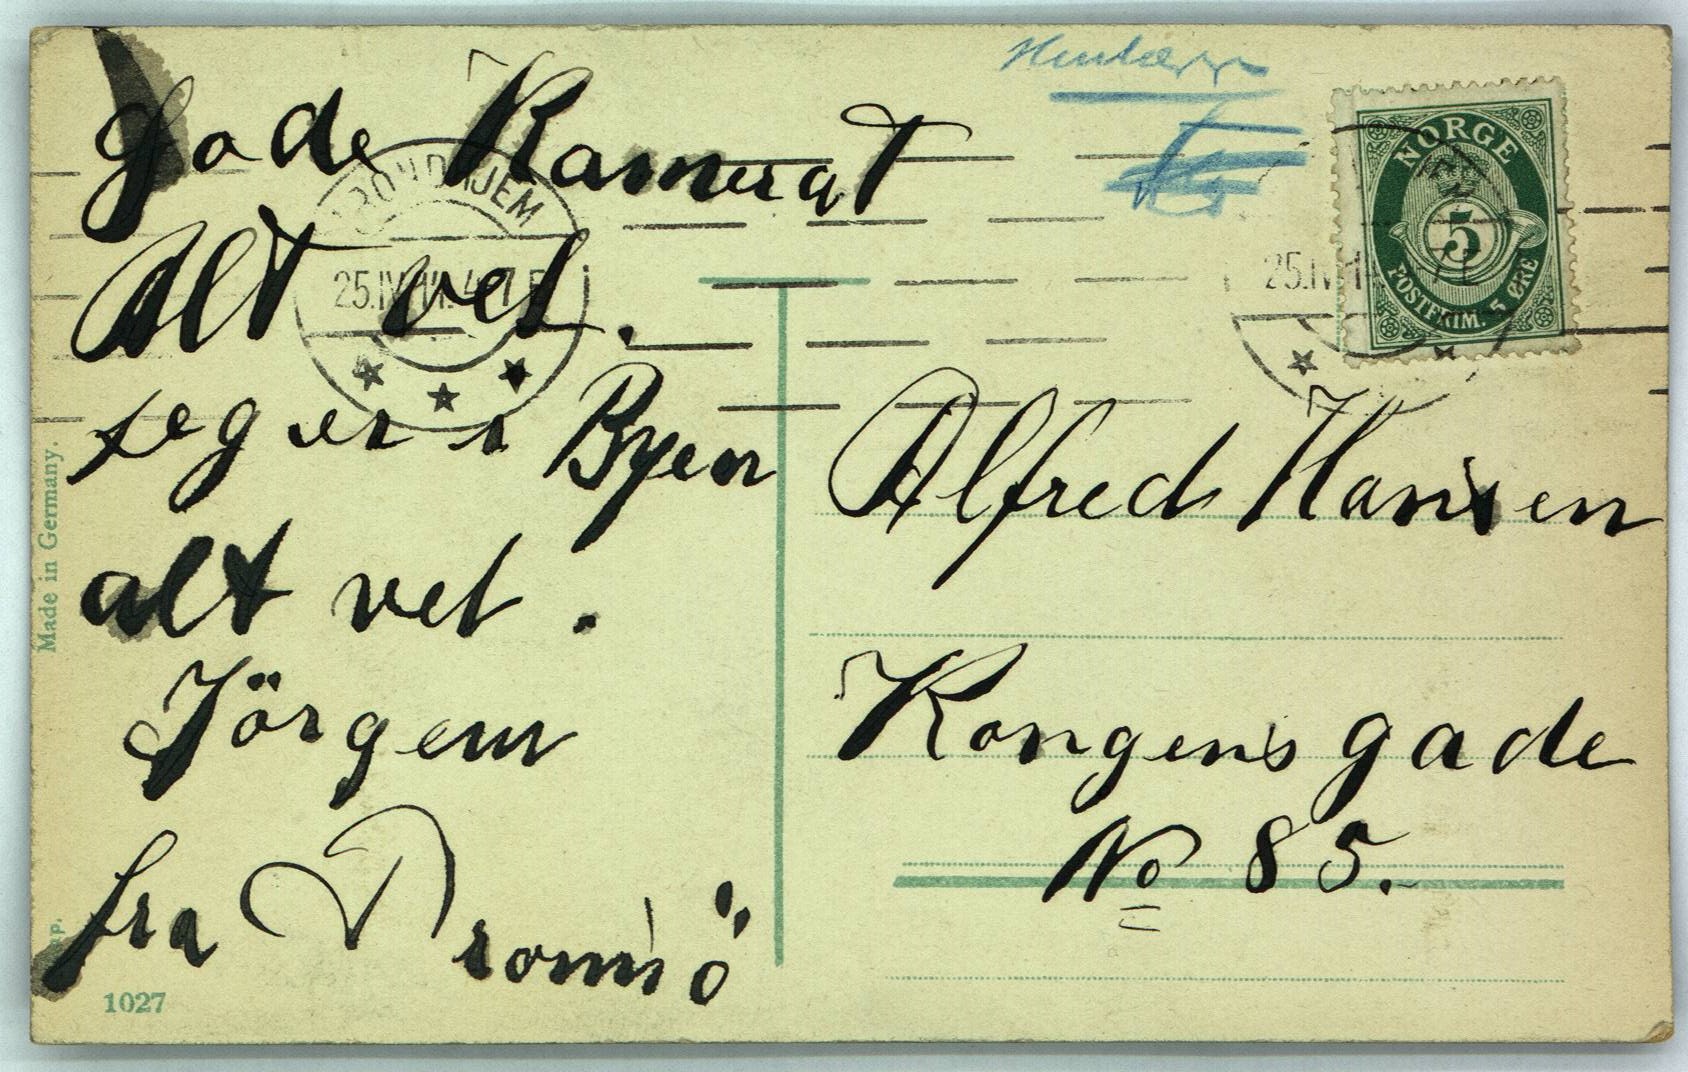 Gode Kamerat
Alt vel.
jeg er i Byen
alt vel.
Jörgen
fra Tromsö
Alfred Hansen
Kongensgade
No 85.
NORGE
5
POSTFRIM. 5 ØRE
TRONDHJEM
25.IV
25.IV
Made in Germany.
1027